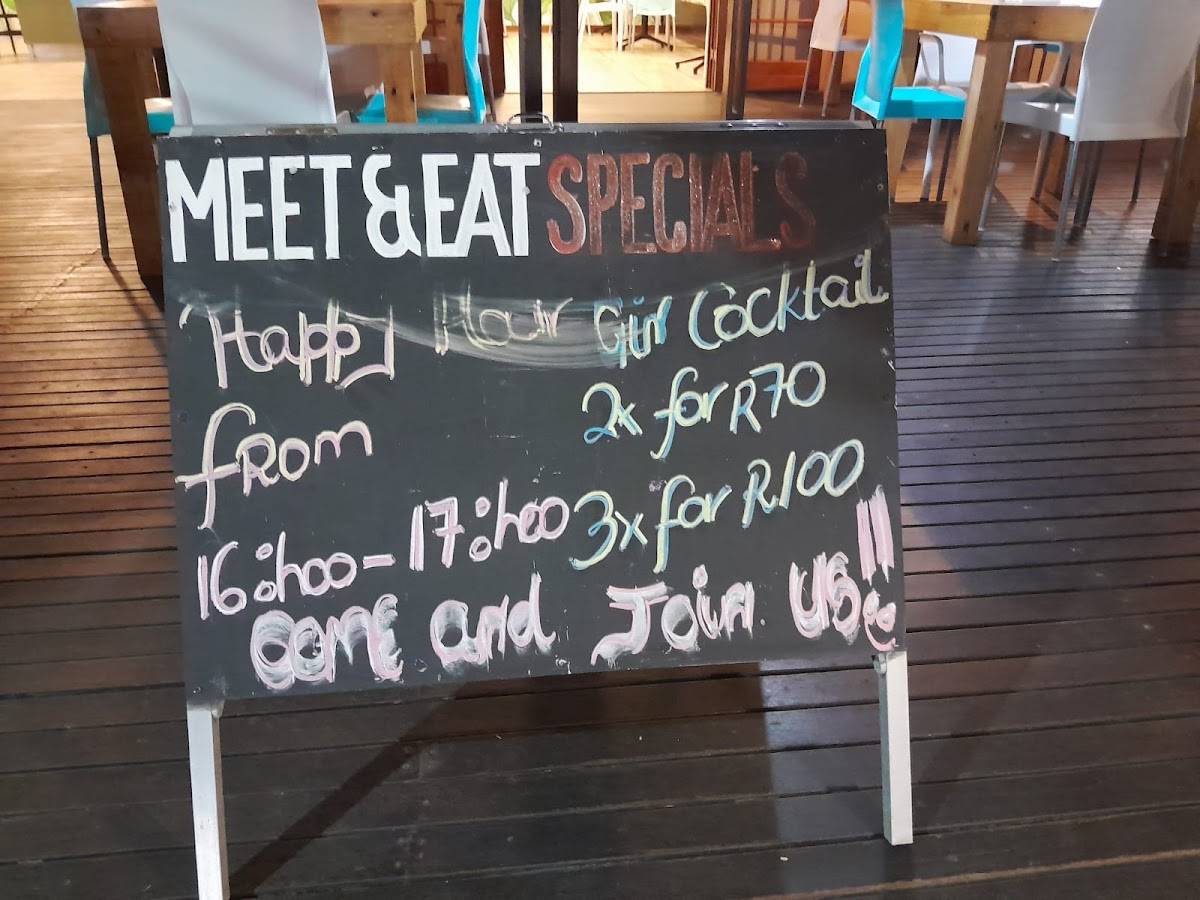 MEET & EAT SPECIALS
Happy Hour
from
16:h00 - 17:h00
Gin Cocktail
2x for R70
3x for R100
Come and Join us!!!